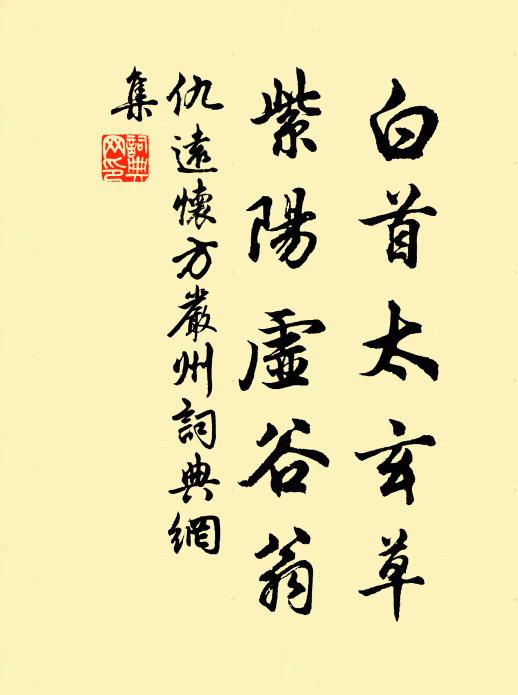 白首太玄草
紫陽虛谷翁
仇遠懷方嚴州詞典網
集
詞典
网印